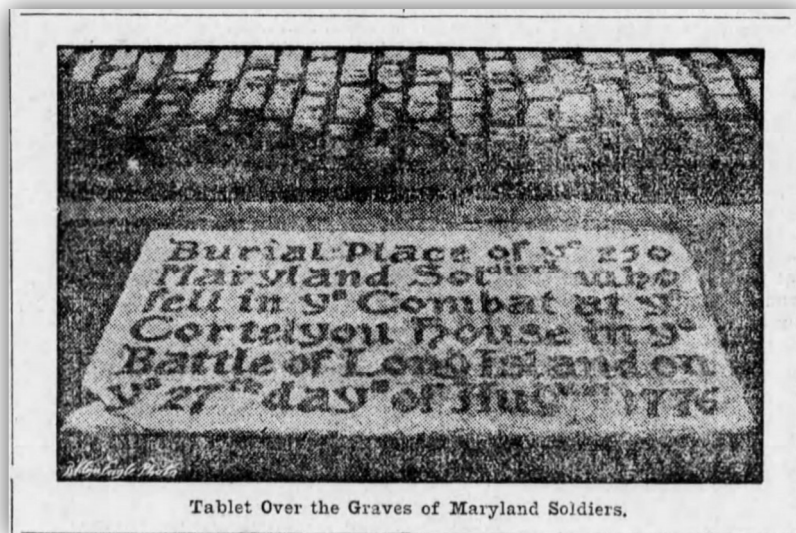 Burial Place of yᵉ 250
Maryland Soldiers who
fell in yᵉ Combat at yᵉ
Cortelyou House in yᵉ
Battle of Long Island on
yᵉ 27ᵗʰ day of Augᵘˢᵗ 1776
Eagle Photo
Tablet Over the Graves of Maryland Soldiers.